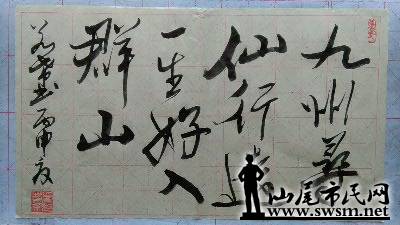 九州尋
仙行遠
一生好入
群山
书丙申夏
汕尾市民网
www.swsm.net